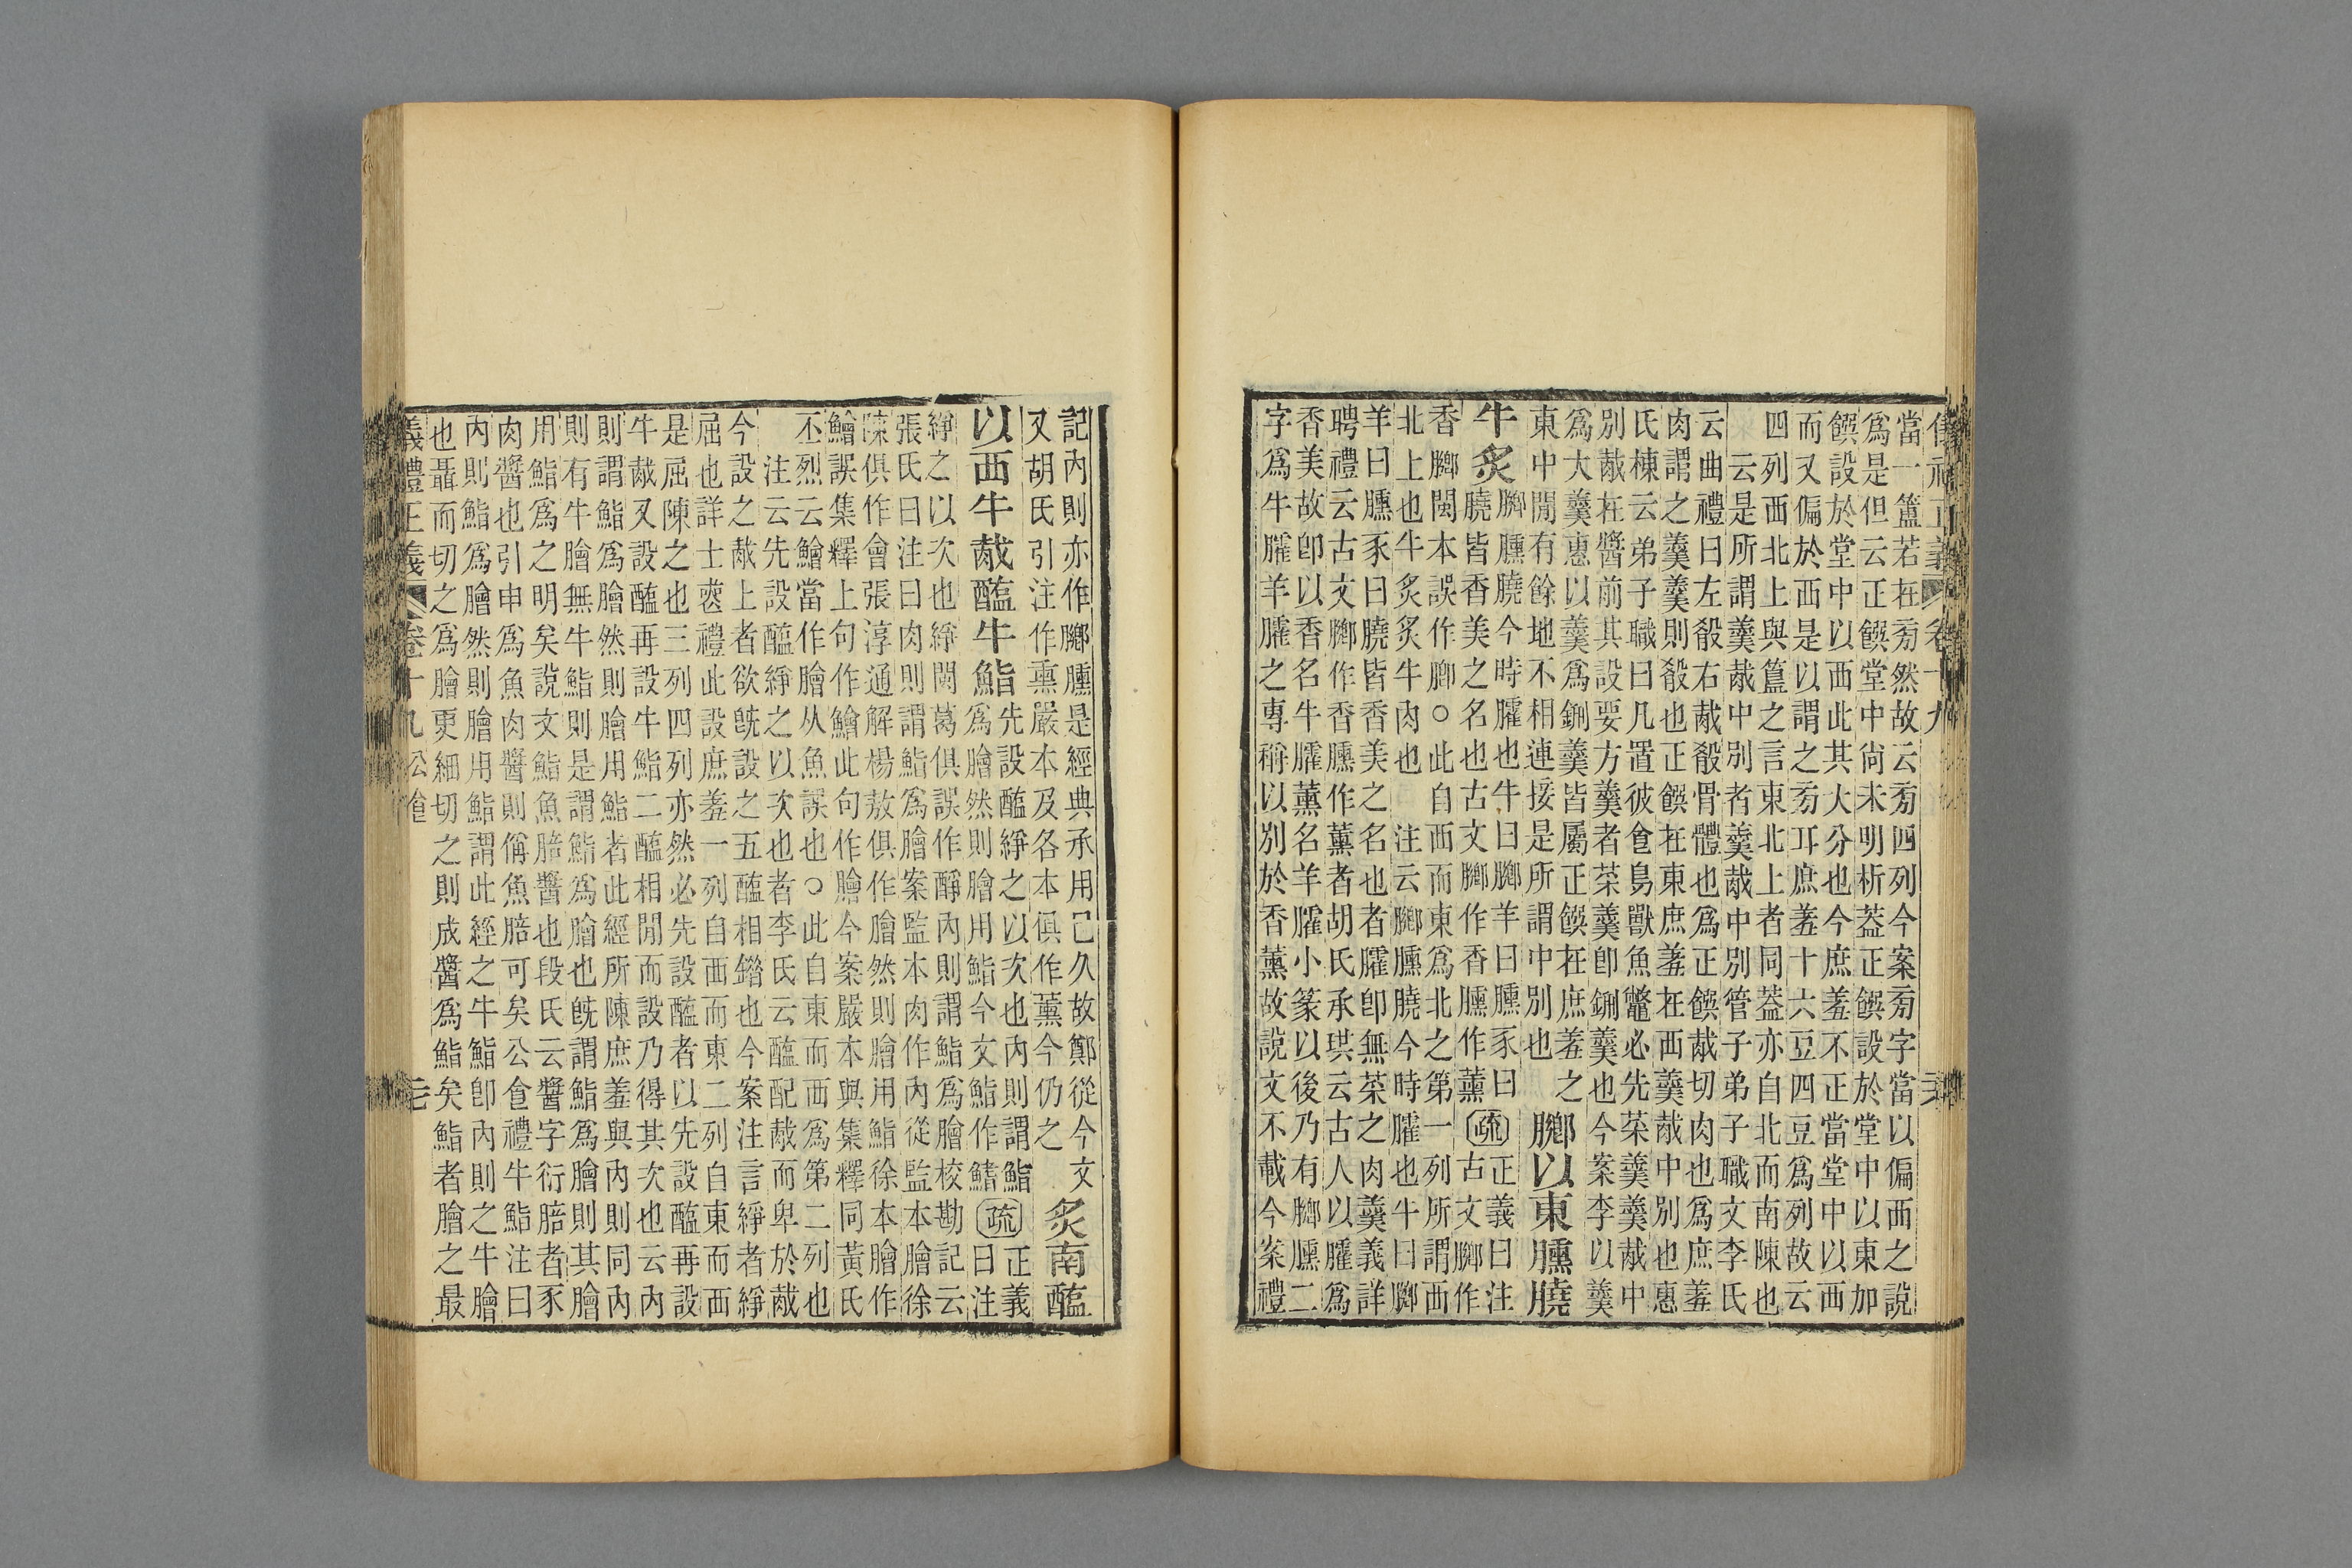 當一簠若在㫄然故云㫄四列今案㫄字當以偏西之說
爲是但云正饌堂中尚未明析葢正饌設於堂中以東加
饌設於堂中以西此其大分也今庶羞不正當堂中以西
而又偏於西是以謂之㫄耳庶羞十六豆四豆爲列故云
四列西北上與簋之言東北上者同葢亦自北而南陳也
云是所謂羹胾中別者羹胾中別管子弟子職文李氏
云曲禮曰左殽右胾殽骨體也爲正饌胾切肉也爲庶羞
肉謂之羹羹則殽也正饌在東庶羞在西羹胾中別也惠
氏棟云弟子職曰凡置彼食鳥獸魚鼈必先菜羹羹胾中
別胾在醬前其設要方羹者菜羹卽鉶羹也今案李以羹
爲大羹惠以羹爲鉶羹皆屬正饌在庶羞之
東中閒有餘地不相連接是所謂中別也 膷以東臐膮
牛炙 膷臐膮今時臛也牛曰膷羊曰臐豕曰
膮皆香美之名也古文膷作香臐作薰 疏 正義曰注古文膷作
香膷閩本誤作膷○此自西而東爲北之第一列所謂西
北上也牛炙炙牛肉也 注云膷臐膮今時臛也牛曰膷
羊曰臐豕曰膮皆香美之名也者臛卽無菜之肉羹義詳
聘禮云古文膷作香臐作薰者胡氏承珙云古人以臛爲
香美故卽以香名牛臛薰名羊臛小篆以後乃有膷臐二
字爲牛臛羊臛之專稱以別於香薰故說文不載今案禮
記內則亦作膷臐是經典承用已久故鄭從今文
又胡氏引注作熏嚴本及各本俱作薰今仍之 炙南醢
以西牛胾醢牛鮨 先設醢綪之以次也內則謂鮨
爲膾然則膾用鮨今文鮨作鰭 疏 正義曰注
綪之以次也綪閩葛俱誤作酭內則謂鮨爲膾校勘記云
張氏曰注曰肉則謂鮨爲膾案監本肉作內從監本膾徐
陳俱作會張淳通解楊敖俱作膾然則膾用鮨徐本膾作
鱠誤集釋上句作鱠此句作膾今案嚴本與集釋同黃氏
丕烈云鱠當作膾从魚誤也○此自東而西爲第二列也
注云先設醢綪之以次也者李氏云醢配胾而卑於胾
今設之胾上者欲旣設之五醢相錯也今案注言綪者綪
屈也詳士喪禮此設庶羞一列自西而東二列自東而西
是屈陳之也三列四列亦然必先設醢者以先設醢再設
牛胾又設醢再設牛鮨二醢相閒而設乃得其次也云內
則謂鮨爲膾然則膾用鮨者此經所陳庶羞與內則同內
則有牛膾無牛鮨則是謂鮨爲膾也旣謂鮨爲膾則其膾
用鮨爲之明矣說文鮨魚䐹醬也段氏云醬字衍䐹者豕
肉醬也引申爲魚肉醬則稱魚䐹可矣公食禮牛鮨注曰
內則鮨爲膾然則膾用鮨謂此經之牛鮨卽內則之牛膾
也聶而切之爲膾更細切之則成醬爲鮨矣鮨者膾之最